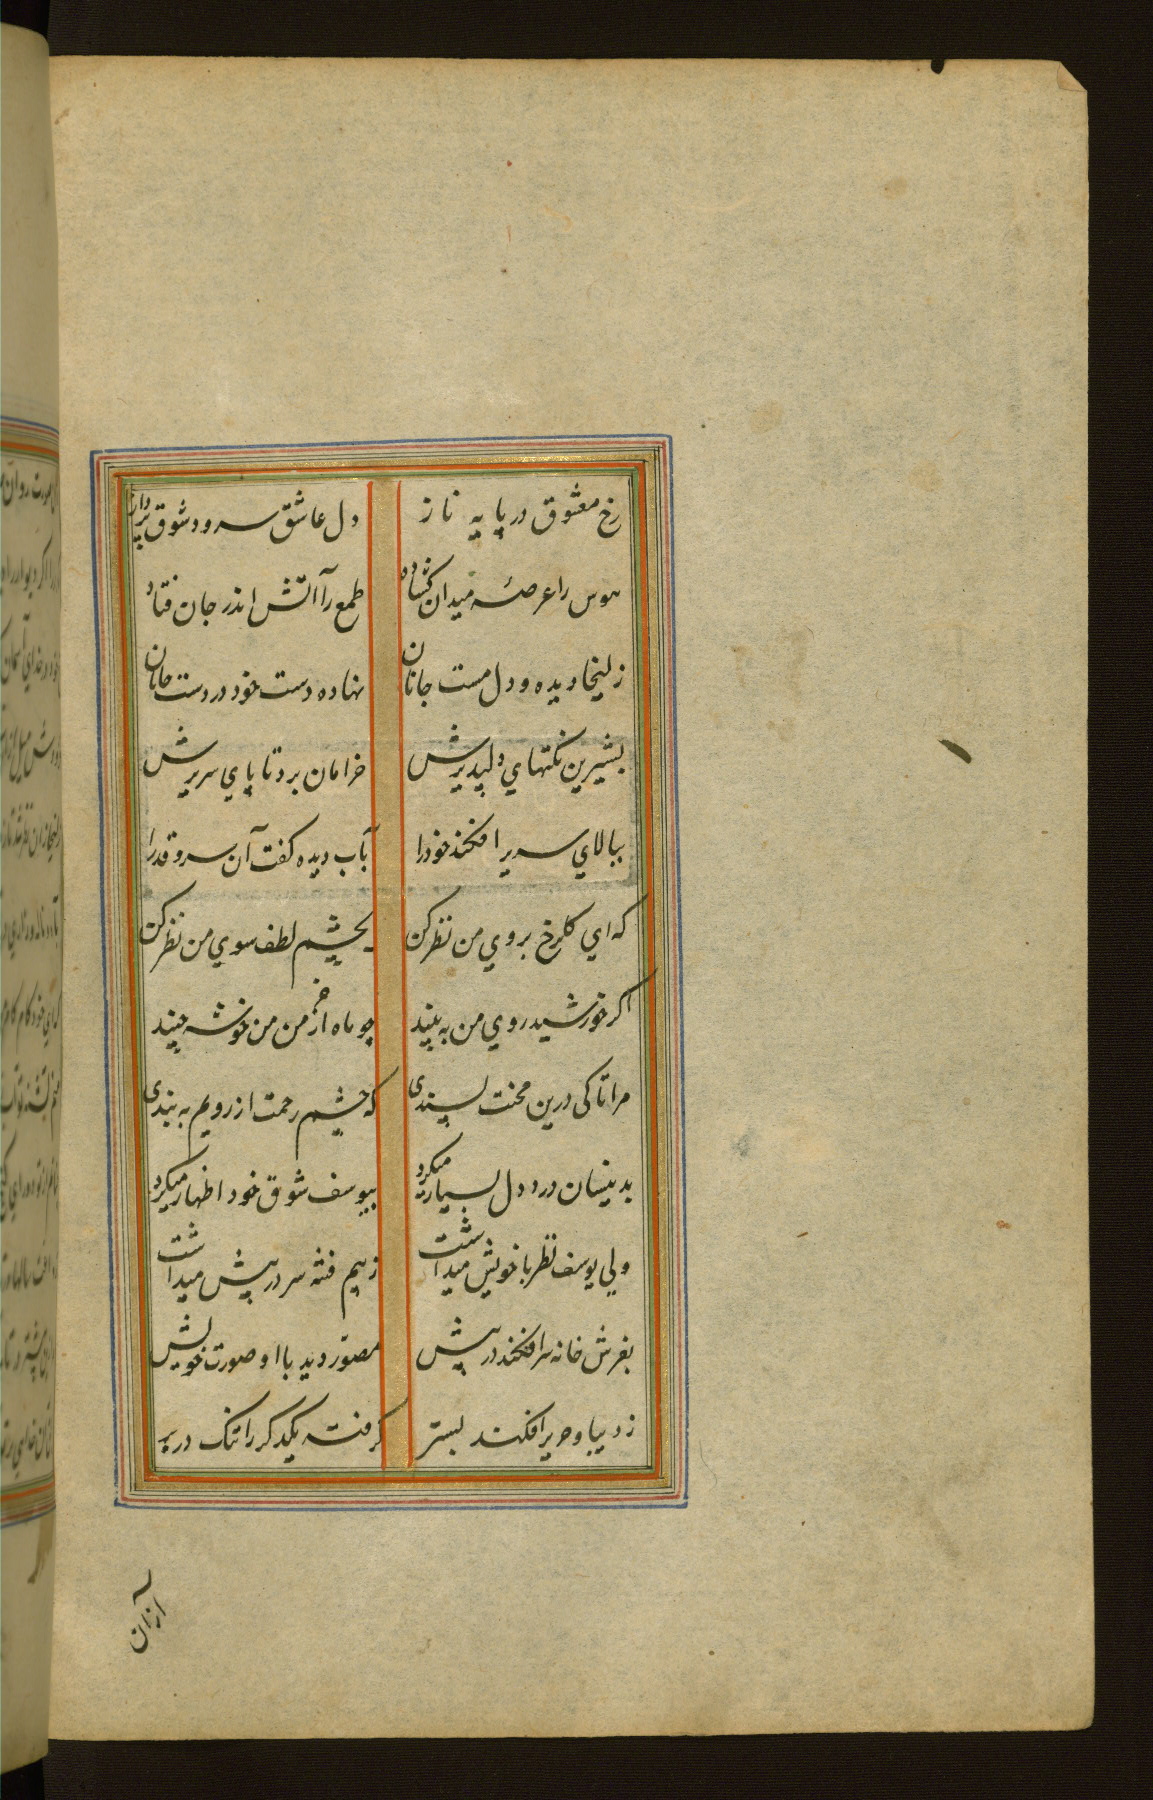 رخ معشوق در پایه ناز دل عاشق سرود شوق پرداز
هوس را عرصه میدان گشاده طمع را آتش اندر جان فتاد
زلیخا دیده و دل مست جانان نهاده دست خود در دست جانان
بشیرین نکتهای دلپذیرش خرامان برد تا پای سریرش
ببالای سریر افکند خود را بآب دیده گفت آن سرو قد را
که ای گلرخ بروی من نظر کن بچشم لطف سوی من نظر کن
اگر خورشید روی من به بیند چو ماه از خرمن من خوشه چیند
مرا تا کی درین محنت پسندی که چشم رحمت از رویم به بندی
بدینسان درد دل بسیار میکرد بیوسف شوق خود اظهار میکرد
ولی یوسف نظر با خویش میداشت ز بیم فتنه سر در پیش میداشت
بفرش خانه سر افکند در پیش مصور دید با او صورت خویش
ز دیبا و حریر افکند بستر گرفته یکدگر را تنگ در بر
از آن